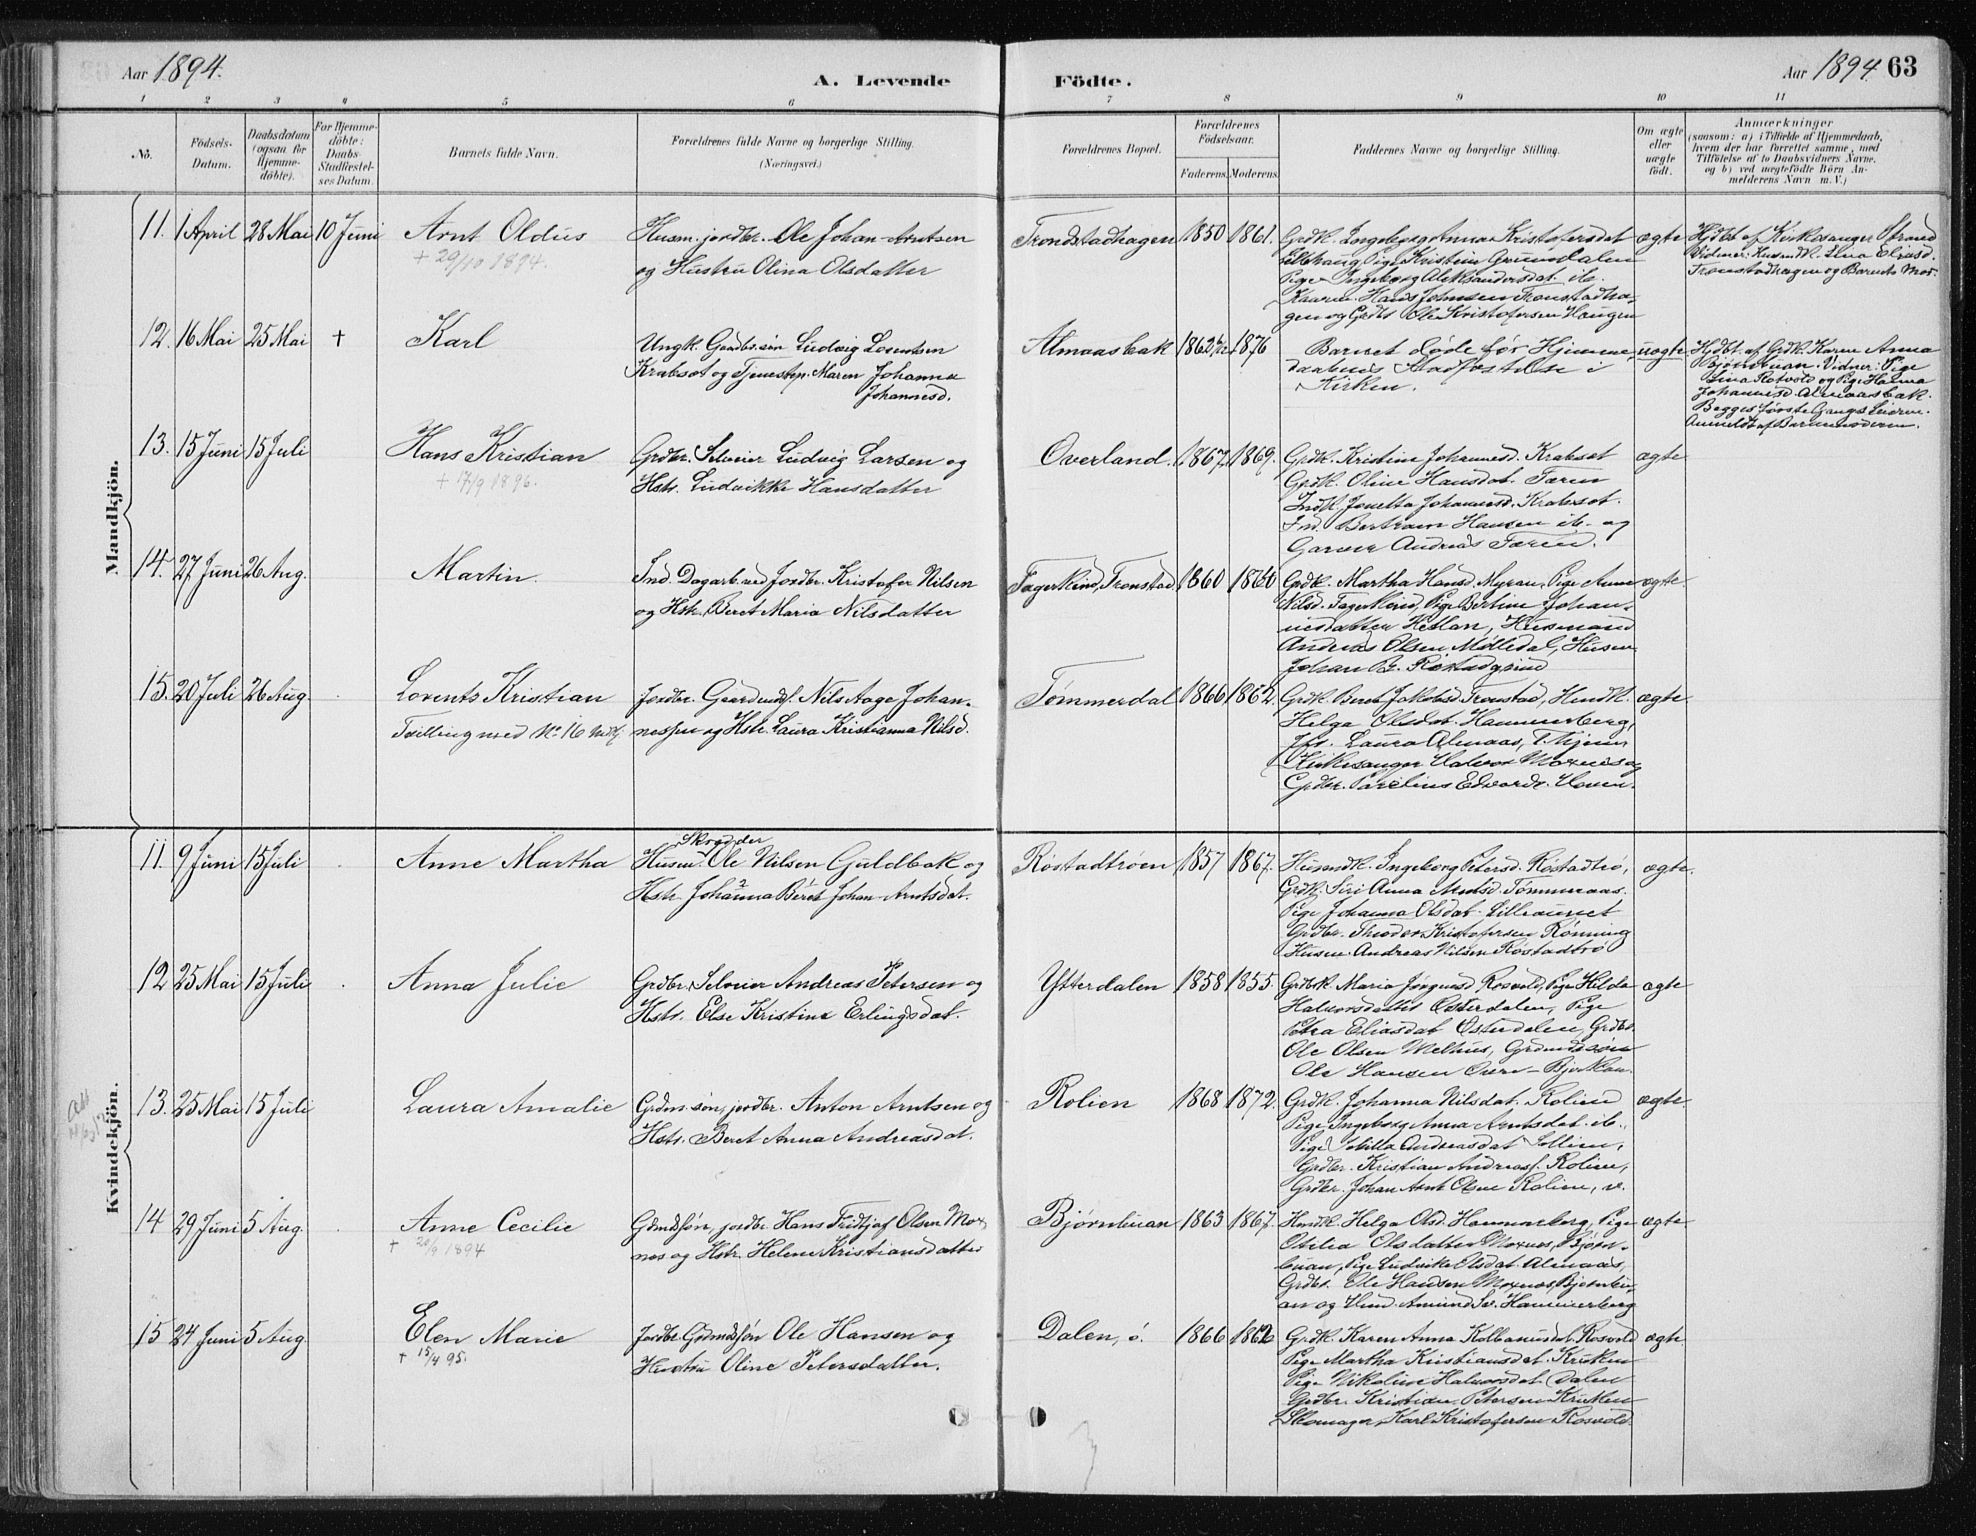 Aar 1894. A. Levende Födte. Aar 1894 63
1 2 3 4 5 6 7 8 9 10 11
No. Födsels-Datum. Daabsdatum (ogsaa for Hjemme-döbte). For Hjemme-döbte: Daabs-Stadfæstel-ses Datum. Barnets fulde Navn. Forældrenes fulde Navne og borgerlige Stilling. (Næringsvei.) Forældrenes Bopæl. Forældrenes Födselsaar. Faderens. Moderens. Faddernes Navne og borgerlige Stilling. Om ægte eller uægte födt. Anmærkninger
(saasom: a) i Tilfælde af Hjemmedaab,
hvem der har forrettet samme, med
Tilföielse af to Daabsvidners Navne,
og b) ved uægtefödte Börn An-
melderens Navn m. V.)
Mandkjön.
11. 1 April 28 Mai 10 Juni Arnt Oldus
+ 29/10 1894.
Husm. jordbr. Ole Johan Arntsen
og Hustru Olina Olsdatter
Trondstadhagen 1850 1861.
Grdk. Ingeborg Anna Kristofersdat
Pige Kristin Grundalen
Pige Ingeborg Aleksandersdat ib.
Hans Johnsen Tronstadha-
gen og Grdbr Ole Kristofersen Haugen
ægte
Hjdbt af Kirkesanger Strand
Vidner: Husmdk. Lina Eliasd.
Tronstadhagen og Barnets Mor.
12. 16 Mai 25 Mai + Karl
Ungk. Gaardbr.søn Ludvig Lorentsen
Krabsot og Tjenestep. Maren Johanna
Johannesd.
Almaasbak 1862 1876
Barnet døde før Hjemme-
daabens Stadfæstelse i
Kirken.
uægte
Hjdbt. af Grdk. Karen Anna
Bjørnbuan. Vidner: Pige
Lina Rotvold og Pige Hanna
Johannesd. Almaasbak.
Begges første Gangs Leierm.
Anmeldt af Barnemoderen.
13. 15 Juni 15 Juli Hans Kristian
+ 17/9 1896.
Grdbr. Selveier Ludvig Larsen og
Hstr. Ludvikke Hansdatter
Overland. 1867. 1869.
Grdk. Kristine Johannesd. Krabsot
Grdk. Oline Hansdat. Faren
Indk. Jonetta Johannesd. Krabsot.
Ind. Bertram Hansen ib. og
Garver Andreas Faren.
ægte
14. 27 Juni 26 Aug. Martin.
Ind. Dagarb. ved Jordbr. Kristofer Nilsen
og Hstr. Beret Maria Nilsdatter
Fagerlind, Tronstad 1860
Grdk. Martha Hansd. Myran, Pige Anne
Nilsd. Fagerlind, Pige Bertine Johan-
nesdatter Hellan, Husmand
Andreas Olsen Mølledal, Husm.
Johan
ægte.
15. 20 Juli 26 Aug. Lorents Kristian
Tvilling med No. 16
Jordbr. Gaardmdsf. Nils Aage Johan-
nessen og Hstr. Laura Kristianna Nilsd.
Tømmerdal 1866 1862.
Grdk. Beret Jakobsd Tronstad, Husmdk.
Helga Olsdat. Hammerberg,
Laura Almaas,
Kirkesanger Halvor Moxnes og
Grdbr. Parelius Edvards.
ægte.
Kvindekjön.
11. 9 Juni 15 Juli Anne Martha
Skrædder
Husm. Ole Nilsen Guldbak og
Hstr. Johanna Beret Johan-Arntsdat.
Røstadtrøen 1857 1867.
Husmdk. Ingeborg Petersd. Røstadtrø,
Grdk. Siri Anna Arntsd. Tømmeraas.
Pige Johanna Olsdat. Lilleaunet
Grdbr. Theodor Kristofersen Rønning
Husm. Andreas Nilsen Røstadtrø
ægte.
12 25 Mai 15 Juli Anna Julie
Grdbr. Selveier Andreas Petersen og
Hstr. Else Kristine Erlingsdat.
Ytterdalen 1858 1855.
Grdbrk. Maria Rosvold, Pige Hilda
Halvorsdatter Østerdalen, Pige
Petra Eliasdat Østerdalen, Grdbr.
Ole Olsen Melhus, Grdmdssøn
Ole Hansen
ægte
13. 25 Mai 15 Juli Laura Amalie
Grdm.søn, jordbr. Anton Arntsen og
Hstr. Beret Anna Andreasdat.
Rolien 1868 1872.
Grdk. Johanna Nilsdat. Rolien
Pige Ingeborg Anna Arntsdat. ib.,
Pige Andreasdat
Grdbr. Kristian Andreass. Rolien,
Grdbr. Johan Arnt Olsen Rolien,
ægte.
14 29 Juni 5 Aug. Anne Cecilie
+ 20/9 1894
Gdmdsøn, jordbr. Hans Fridtjof Olsen Mox-
nes og Hstr. Helene Kristiansdatter
Bjørnbuan 1863 1867.
Helga Olsd. Hammerberg, Pige
Otilia Olsdatter Moxnes, Bjørn-
buan, Pige Ludvike Olsdat. Almaas,
Grdbr. Ole Hansen Moxnes, Bjørnbu-
an og Hammerberg
ægte
15 24 Juni 5 Aug. Elen Marie
+ 15/4 95.
Jordbr. Grdmdsøn Ole Hansen og
Hustru Oline Petersdatter.
Dalen, ø. 1866
Grdk. Karen Anna Kolbanusdat. Rosvold
Pige Martha Kristiansdat. Kruken
Pige Nikoline Halvorsdat. Dalen
Grdbr. Kristian Petersen Krukken
Skomager Karl Kristofersen Rosvold.
ægte